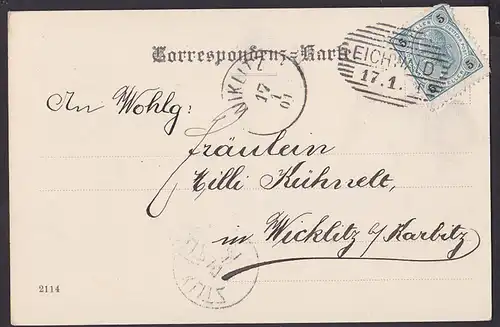 Correspondenz-Karte
5 5
EICHWALD
17.1.
5 5
WIKLITZ
17
1
01
An Wohlg:
Fräulein
Tilli Kühnelt,
in Wicklitz b/ Karbitz
2114